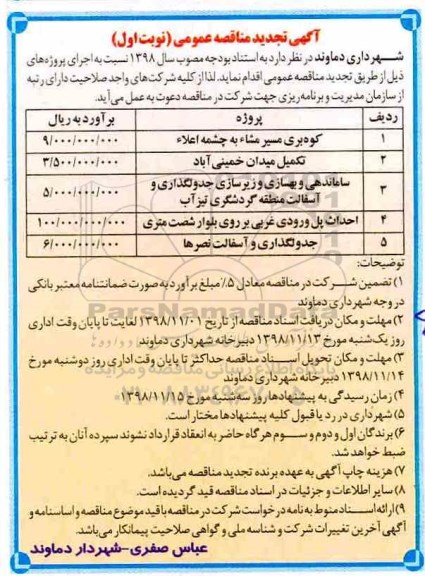 آگهی تجدید مناقصه عمومی (نوبت اول)
شهرداری دماوند در نظر دارد به استناد بودجه مصوب سال ۱۳۹۸ نسبت به اجرای پروژه‌های
ذیل از طریق تجدید مناقصه عمومی اقدام نماید. لذا از کلیه شرکت‌های واجد صلاحیت دارای رتبه
از سازمان مدیریت و برنامه‌ریزی جهت شرکت در مناقصه دعوت به عمل می‌آید.
ردیف پروژه برآورد به ریال
۱ کوه‌بری مسیر مشاء به چشمه اعلاء ۹/۰۰۰/۰۰۰/۰۰۰
۲ تکمیل میدان خمینی‌آباد ۳/۵۰۰/۰۰۰/۰۰۰
۳ ساماندهی و بهسازی و زیرسازی جدولگذاری و
آسفالت منطقه گردشگری تیزآب ۵/۰۰۰/۰۰۰/۰۰۰
۴ احداث پل ورودی غربی بر روی بلوار شصت متری ۱۰۰/۰۰۰/۰۰۰/۰۰۰
۵ جدولگذاری و آسفالت نصرها ۶/۰۰۰/۰۰۰/۰۰۰
توضیحات:
۱) تضمین شرکت در مناقصه معادل ۵٪ مبلغ برآورد به صورت ضمانتنامه معتبر بانکی
در وجه شهرداری دماوند
۲) مهلت و مکان دریافت اسناد مناقصه از تاریخ ۱۳۹۸/۱۱/۰۱ لغایت تا پایان وقت اداری
روز یک‌شنبه مورخ ۱۳۹۸/۱۱/۱۳ دبیرخانه شهرداری دماوند
۳) مهلت و مکان تحویل اسناد مناقصه حداکثر تا پایان وقت اداری روز دوشنبه مورخ
۱۳۹۸/۱۱/۱۴ دبیرخانه شهرداری دماوند
۴) زمان رسیدگی به پیشنهادها روز سه‌شنبه مورخ ۱۳۹۸/۱۱/۱۵
۵) شهرداری در رد یا قبول کلیه پیشنهادها مختار است.
۶) برندگان اول و دوم و سوم هرگاه حاضر به انعقاد قرارداد نشوند سپرده آنان به ترتیب
ضبط خواهد شد.
۷) هزینه چاپ آگهی به عهده برنده تجدید مناقصه می‌باشد.
۸) سایر اطلاعات و جزئیات در اسناد مناقصه قید گردیده است.
۹) ارائه اسناد منوط به نامه درخواست شرکت در مناقصه با قید موضوع مناقصه و اساسنامه و
آگهی آخرین تغییرات شرکت و شناسه ملی و گواهی صلاحیت پیمانکار می‌باشد.
عباس صفری-شهردار دماوند